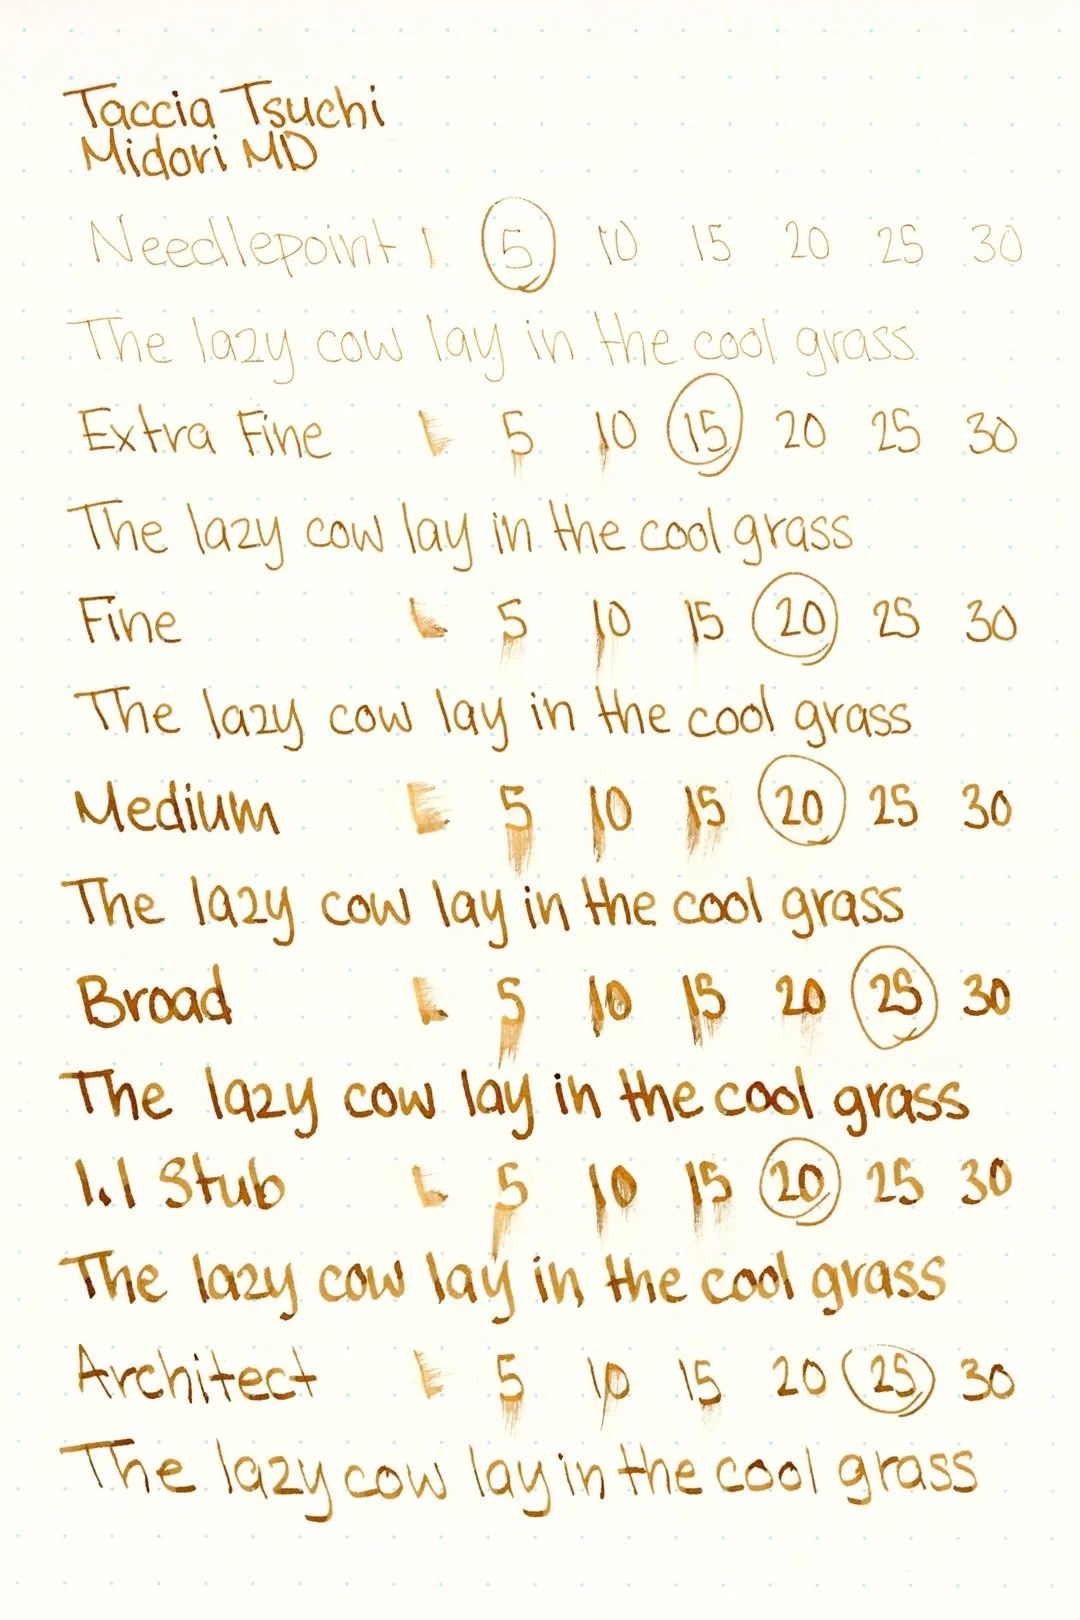 Taccia Tsuchi
Midori MD
Needlepoint 1 5 10 15 20 25 30
The lazy cow lay in the cool grass
Extra Fine 1 5 10 15 20 25 30
The lazy cow lay in the cool grass
Fine 1 5 10 15 20 25 30
The lazy cow lay in the cool grass
Medium 1 5 10 15 20 25 30
The lazy cow lay in the cool grass
Broad 1 5 10 15 20 25 30
The lazy cow lay in the cool grass
1.1 Stub 1 5 10 15 20 25 30
The lazy cow lay in the cool grass
Architect 1 5 10 15 20 25 30
The lazy cow lay in the cool grass